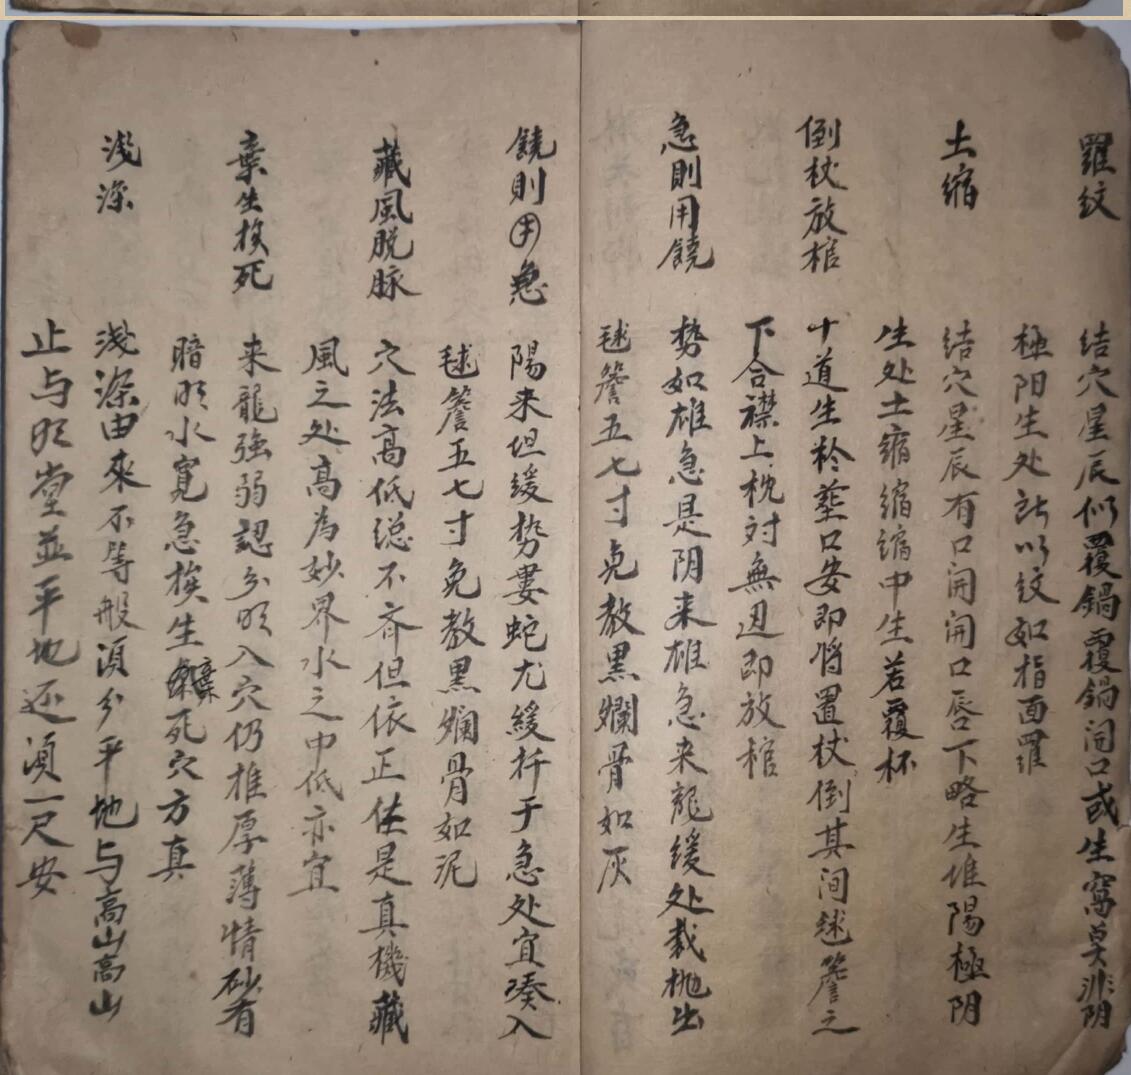 羅紋　結穴星辰似覆鍋覆鍋開口或生窩莫非阴
極阳生处所以紋如指面羅
土縮　結穴星辰有口開開口唇下略生堆陽極阴
生处土縮縮縮中生若覆杯
倒杖放棺　十道生於塟口安即将置杖倒其间毬簷之
下合襟上枕対無迯即放棺
急則用饒　势如雄急是阴来雄急来龍緩处裁抛出
毬簷五七寸免教黒爛骨如灰
饒則用急　陽来但緩势婁蛇尤緩扦于急处宜凑入
毬簷五七寸免教黒爛骨如泥
藏風脱脉　穴法高低総不齐但依正体是真機藏
風之处高為妙界水之中低亦宜
棄生挨死　来龍強弱認分明入穴仍推厚薄情砂有
暗明水寛急挨生棄死穴方真
浅深　浅深由來不等般湏分平地与高山高山
止与明堂並平地还湏一尺安